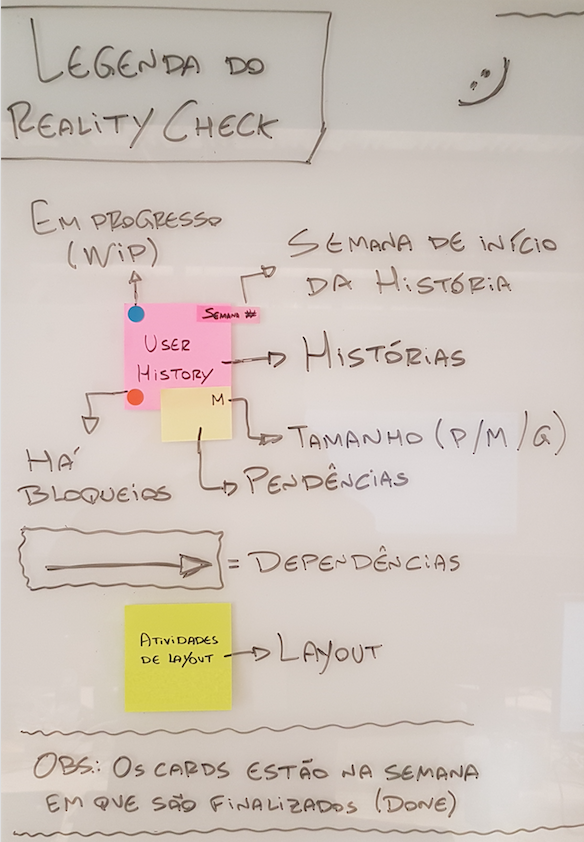 LEGENDA DO
REALITY CHECK
EM PROGRESSO
(WIP)
SEMANA DE INÍCIO
DA HISTÓRIA
SEMANA #
USER
HISTORY
HISTÓRIAS
M
TAMANHO (P/M/G)
HÁ
BLOQUEIOS
PENDÊNCIAS
= DEPENDÊNCIAS
ATIVIDADES
DE LAYOUT
LAYOUT
OBS.: OS CARDS ESTÃO NA SEMANA
EM QUE SÃO FINALIZADOS (DONE)